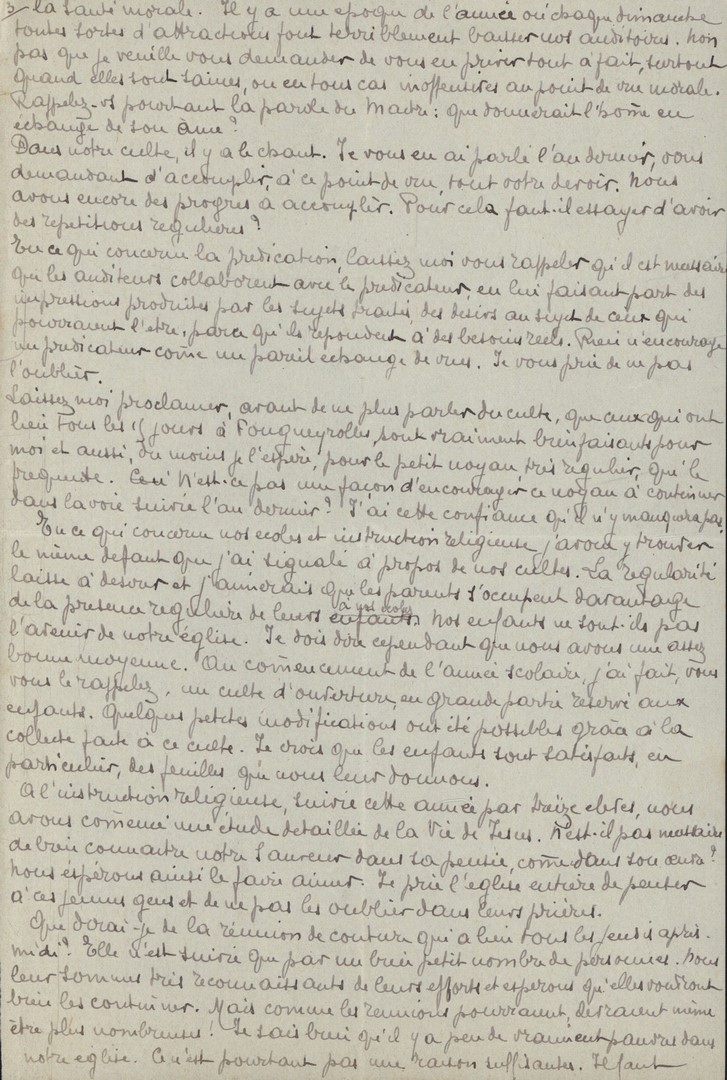 3/ la santé morale. Il y a une epoque de l'année où chaque dimanche
toutes sortes d'attractions font terriblement baisser nos auditoires. Non
pas que je veuille vous demander de vous en priver tout à fait, surtout
quand elles sont saines, ou en tous cas inoffensives au point de vue morale.
Rappelez-vs pourtant la parole du Maitre : que donnerait l'home en
échange de son âme ?
Dans notre culte, il y a le chant. Je vous en ai parlé l'an dernier, vous
demandant d'accomplir, à ce point de vue, tout votre devoir. Nous
avons encore des progres à accomplir. Pour cela faut-il essayer d'avoir
des repetitions regulieres ?
En ce qui concerne la predication, laissez moi vous rappeler qu'il est necessaire
que les auditeurs collaborent avec le predicateur, en lui faisant part des
impressions produites par les sujets traités, des désirs au sujet de ceux qui
pourraient l'etre, parce qu'ils repondent à des besoins reels. Rien n'encourage
un predicateur come un pareil échange de vues. Je vous prie de ne pas
l'oublier.
Laissez moi proclamer, avant de ne plus parler du culte, que ceux qui ont
lieu tous les 15 jours à Fougueyrolles, sont vraiment bienfaisants pour
moi et aussi, du moins je l'espère, pour le petit noyau, très regulier, qui le
frequente. Ceci n'est-ce pas une façon d'encourager ce noyau à continuer
dans la voie suivie l'an dernier ? J'ai cette confiance qu'il n'y manquera pas.
En ce qui concerne nos ecoles et instruction religieuse, j'avoue y trouver
le même defaut que j'ai signalé à propos de nos cultes. La regularité
laisse à desirer et j'aimerais que les parents s'occupent davantage
de la presence reguliere de leurs enfants à nos ecoles. Nos enfants ne sont-ils pas
l'avenir de notre église. Je dois dire cependant que nous avons une assez
bonne moyenne. Au comencement de l'année scolaire, j'ai fait, vous
vous le rappelez, un culte d'ouverture, en grande partie reservé aux
enfants. Quelques petites modifications ont été possibles grâce à la
collecte faite à ce culte. Je crois que les enfants sont satisfaits, en
particulier, des feuilles que nous leur donnons.
A l'instruction religieuse, suivie cette année par treize eleves, nous
avons comencé une étude detaillée de la Vie de Jesus. N'est-il pas necessaire
de bien connaitre notre Sauveur dans sa pensée, come dans son œuvre ?
Nous espérons ainsi le faire aimer. Je prie l'église entière de penser
à ces jeunes gens et de ne pas les oublier dans leurs prières.
Que dirai-je de la réunion de couture qui a lieu tous les jeudis après-
midi ? Elle n'est suivie que par un bien petit nombre de personnes. Nous
leur sommes très reconnaissants de leurs efforts et espérons qu'elles voudront
bien les continuer. Mais comme les reunions pourraient, devraient même
être plus nombreuses ! Je sais bien qu'il y a peu de vraiment pauvres dans
notre église. Ce n'est pourtant pas une raison suffisantes. Il faut